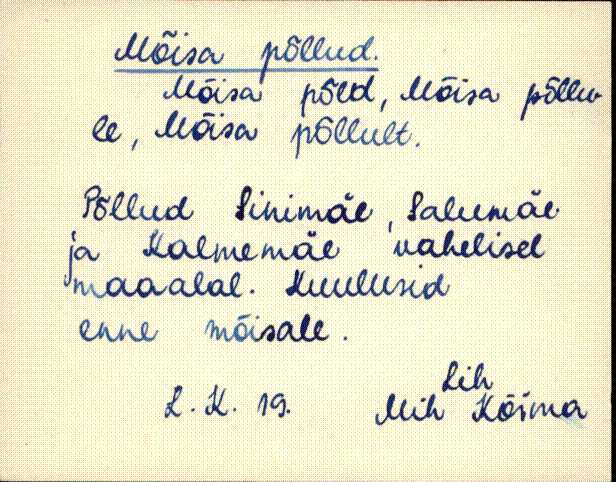 Mõisa põllud.
Mõisa põld, Mõisa põllu-
le, Mõisa põllult.
Põllud Sinimäe, Salumäe
ja Kalmemäe vahelisel
maaalal. Kuulusid
enne mõisale.
Lih
L. K. 19. Mih Kõima